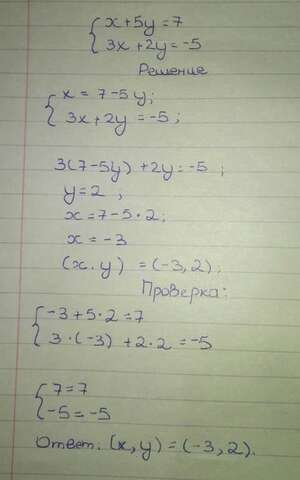 { x + 5y = 7
3x + 2y = -5
Решение
{ x = 7 - 5y;
3x + 2y = -5;
3(7-5y) + 2y = -5;
y = 2;
x = 7 - 5 · 2;
x = -3
(x. y) = (-3, 2);
Проверка:
{ -3 + 5 · 2 = 7
3 · (-3) + 2 · 2 = -5
{ 7 = 7
-5 = -5
Ответ: (x, y) = (-3, 2).